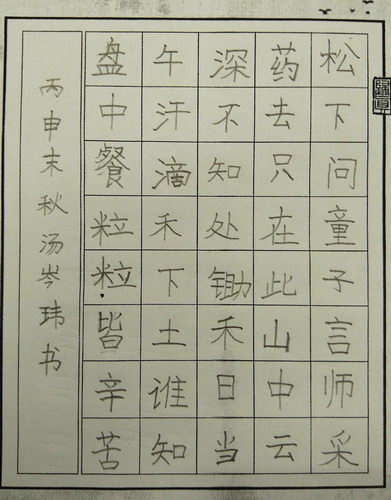 松下问童子言师采
药去只在此山中云
深不知处锄禾日当
午汗滴禾下土谁知
盘中餐粒粒皆辛苦
丙申末秋汤岑玮书